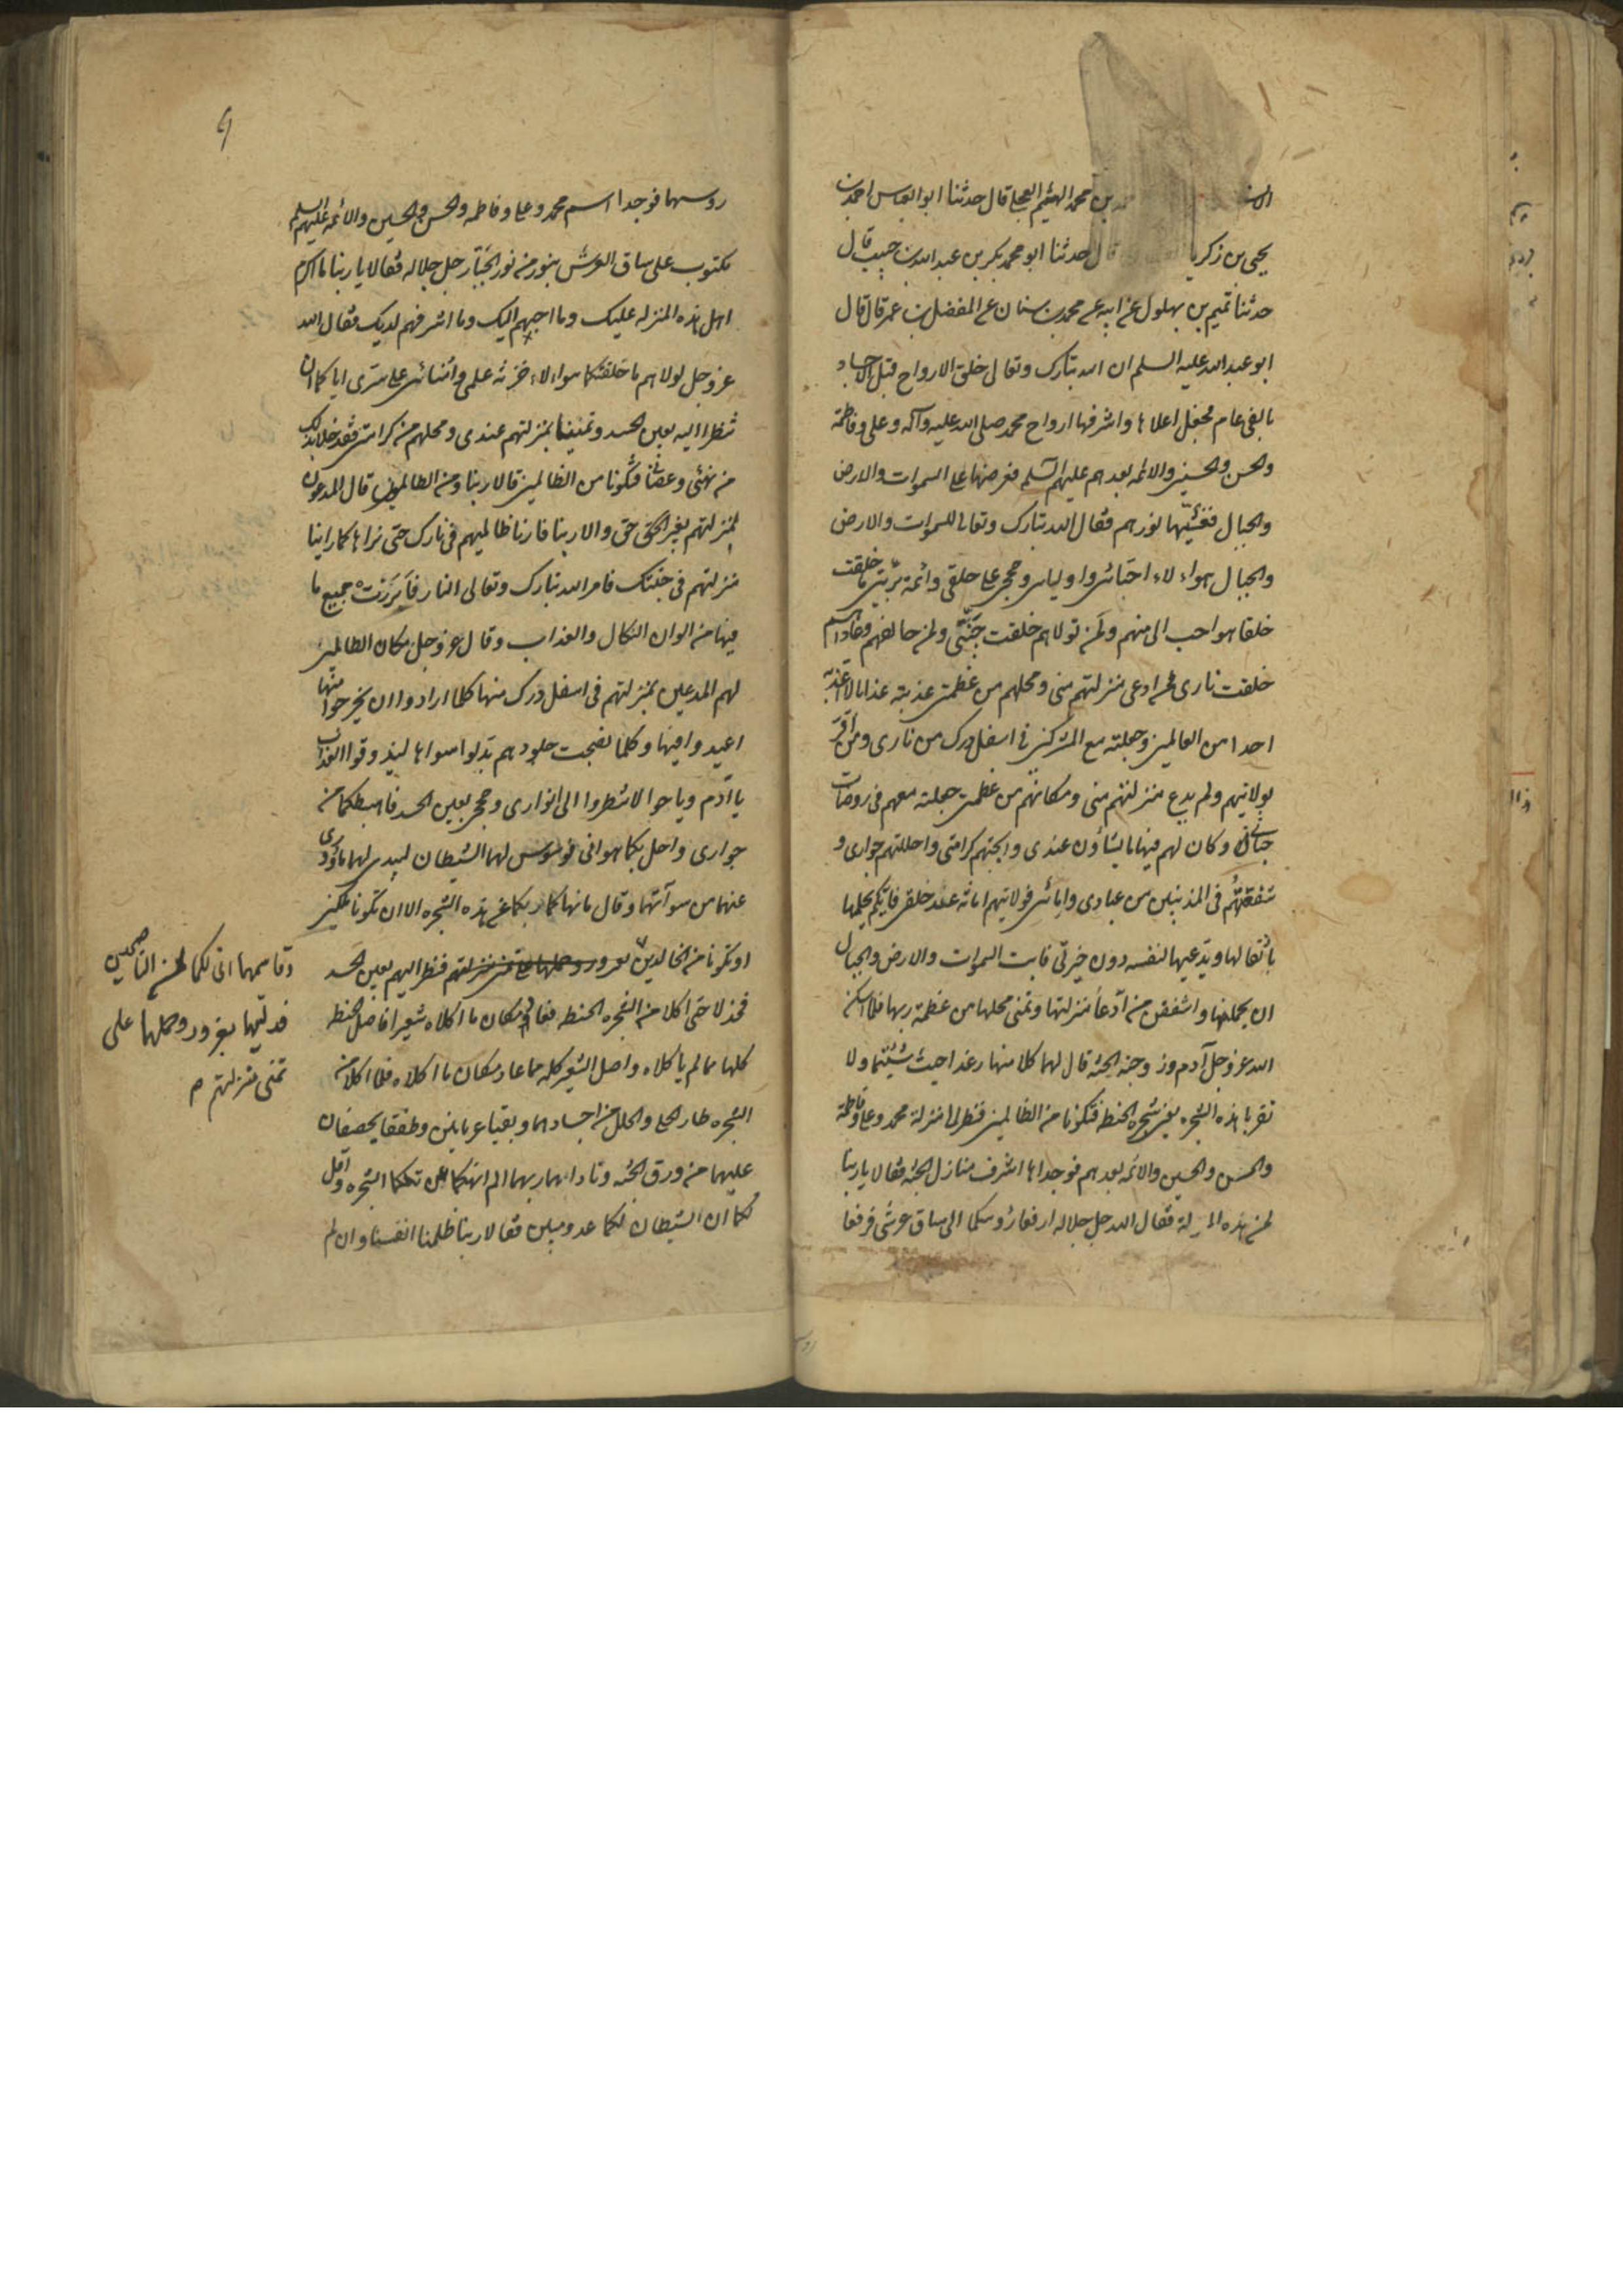 بن محمد الهیثم العجلی قال حدثنا ابو العباس احمد بن
یحیی بن زکریا قال حدثنا ابو محمد بکر بن عبد الله بن حبیب قال
حدثنا تمیم بن بهلول عن ابیه عن محمد بن سنان عن المفضل بن عمر قال قال
ابو عبد الله علیه السلم ان الله تبارک وتعالی خلق الارواح قبل الاجساد
بالفی عام فجعل اعلاها واشرفها ارواح محمد صلی الله علیه وآله وعلی وفاطمة
والحسن والحسین والائمه بعدهم علیهم السلم فعرضها علی السموات والارض
والجبال فغشّیها نورهم فقال الله تبارک وتعالی للسموات والارض
والجبال هواء لاء احبّائی واولیایی وحججی علی خلقی وائمة بریّتی ما خلقت
خلقا هو احب الی منهم ولمن تولاهم خلقت جنّتی ولمن خالفهم وعاداهم
خلقت ناری فمن ادعی منزلتهم منی ومحلهم من عظمتی عذبته عذابا لا اعذبه
احدا من العالمین وجعلته مع المشرکین فی اسفل درک من ناری ومن اقرّ
بولایتهم ولم یدع منزلتهم منی ومکانهم من عظمتی جعلته معهم فی روضات
جناتی وکان لهم فیها ما یشاؤن عندی وابحتهم کرامتی واحللتهم جواری و
شفعتهُم فی المذنبین من عبادی وامائی فولایتهم امانة عند خلقی فایکم یحملها
باثقالها ویدّعیها لنفسه دون خیرتی فابت السموات والارض والجبال
ان یحملنها واشفقن من ادعا منزلتها وتمنی محلها من عظمة ربها فلما اسکن
الله عز وجل آدم وزوجته الجنة قال لهما کلا منها رغدا حیث شئتما ولا
تقربا هذه الشجره یعنی شجرة الحنطة فتکونا من الظالمین فنظرا الی منزلة محمد وعلی وفاطمة
والحسن والحسین والائمه بعدهم فوجداها اشرف منازل الجنة فقالا یا ربنا
لمن هذه المنزلة فقال الله جل جلاله ارفعا رؤسکما الی ساق عرشی فرفعا
روسهما فوجدا اسم محمد وعلی وفاطمه والحسن والحسین والائمه علیهم السلم
مکتوب علی ساق العرش بنور من نور الجبّار جل جلاله فقالا یا ربنا ما اکرم
اهل هذه المنزلة علیک وما احبهم الیک وما اشرفهم لدیک فقال الله
عز وجل لولاهم ما خلقتکما هواء لاء خزنة علمی وامنائی علی سرّی ایاکما ان
تنظرا الیهم بعین الحسد وتتمنیا منزلتهم عندی ومحلهم من کرامتی فتدخلا بذلک
من نهیی وعصیانی فتکونا من الظالمین قالا ربنا ومن الظالمون قال المدعون
لمنزلتهم بغیر حق قالا ربنا فارنا ظالمیهم فی نارک حتی نراها کما راینا
منزلتهم فی جنتک فامر الله تبارک وتعالی النار فابرزت جمیع ما
فیها من الوان النکال والعذاب وقال عز وجل مکان الظالمین
لهم المدعین بمنزلتهم فی اسفل درک منها کلما ارادوا ان یخرجوا منها
اعیدوا فیها وکلما نضجت جلودهم بدلوا سواها لیذوقوا العذاب
یا آدم ویا حوا لا تنظروا الی انواری وحججی بعین الحسد فاهبطکما من
جواری واحل بکما هوانی فوسوس لهما الشیطان لیبدی لهما ما وُری
عنهما من سوآتهما وقال ما نهاکما ربکما عن هذه الشجره الا ان تکونا ملکین
او تکونا من الخالدین بغرور وحملهما علی تمنی منزلتهم فنظرا الیهم بعین الحسد
فخذلا حتی اکلا من الشجره الحنطه فعاد مکان ما اکلاه شعیرا فاصل الحنطة
کلها مما لم یاکلاه واصل الشعیر کله مما عاد مکان ما اکلاه فلما اکلا من
الشجره طار الحلی والحلل من اجسادهما وبقیا عریانین وطفقا یخصفان
علیهما من ورق الجنه وناداهما ربهما الم انهکما عن تلکما الشجره واقل
لکما ان الشیطان لکما عدو مبین فقالا ربنا ظلمنا انفسنا وان لم
وقاسمهما انی لکما لمن الناصحین
فدلیهما بغرور وحملهما علی
تمنی منزلتهم م